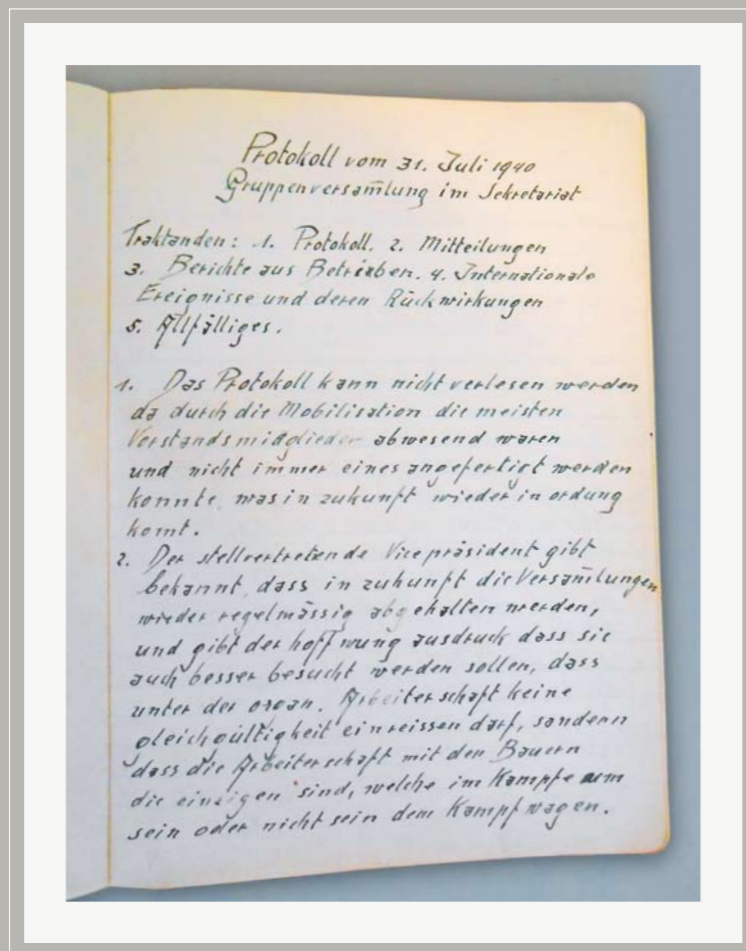 Protokoll vom 31. Juli 1940
Gruppenversam̄lung im Sekretariat
Traktanden: 1. Protokoll. 2. Mitteilungen
3. Berichte aus Betrieben. 4. Internationale
Ereignisse und deren Rückwirkungen
5. Allfälliges.
1. Das Protokoll kann nicht verlesen werden
da durch die Mobilisation die meisten
Vorstandsmidglieder abwesend waren
und nicht immer eines angefertigt werden
konnte, was in zukunft wieder in ordung
komt.
2. Der stellvertretende Vicepräsident gibt
bekannt, dass in zukunft die Versam̄lungen
wieder regelmässig abgehalten werden,
und gibt der hoffnung ausdruck dass sie
auch besser besucht werden sollen, dass
unter der organ. Arbeiterschaft keine
gleichgültigkeit einreissen darf, sondern
dass die Arbeiterschaft mit den Bauern
die einzigen sind, welche im Kampfe um
sein oder nicht sein dem Kampf wagen.